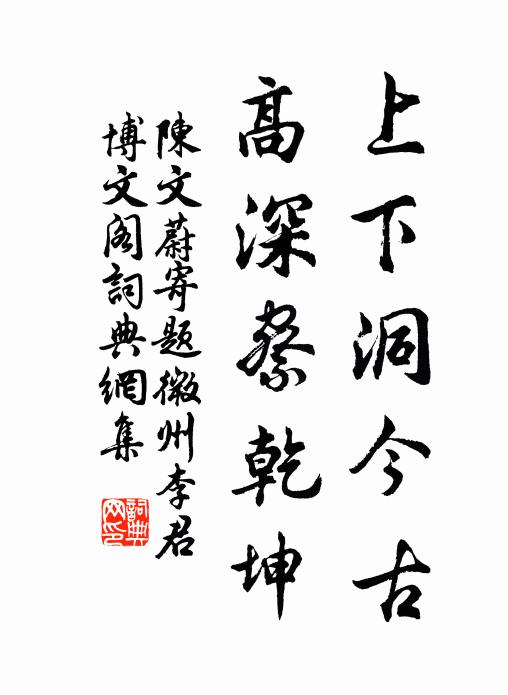 上下洞今古
高深察乾坤
陳文蔚寄题徽州李君
博文阁詞典網集
詞典网印